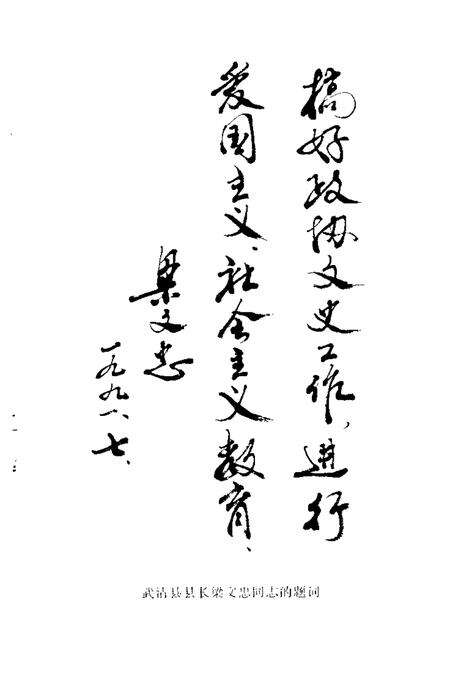 搞好政协文史工作，进行
爱国主义、社会主义教育、
梁文忠
一九九一、七、
武沽县县长梁文忠同志的题词